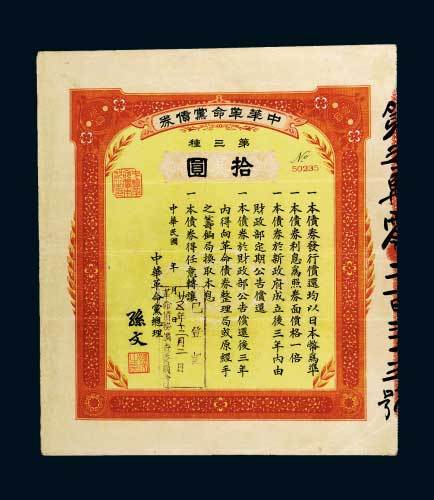 中華革命黨債券
第三種
拾圓
No 50235
一本債券發行償還均以日本幣為準
一本債券利息為照券面價格一倍
一本債券於新政府成立後三年內由
財政部定期公告償還
一本債券於財政部公告償還後三年
內得向革命債券整理局或原經手
之籌餉局換取本息
一本債券得任意轉讓
中華民國 年 月 日
中華革命黨總理
孫文